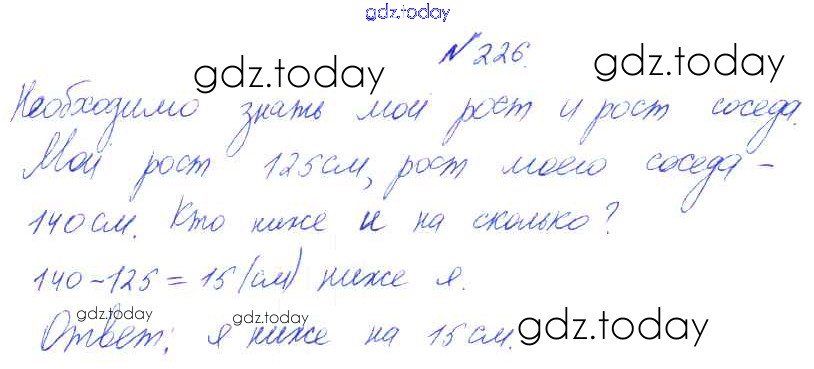 gdz.today
№ 226.
gdz.today gdz.today
Необходимо знать мой рост и рост соседа.
gdz.today gdz.today
Мой рост 125 см, рост моего соседа –
140 см. Кто ниже и на сколько?
140 – 125 = 15 (см) ниже я.
gdz.today gdz.today gdz.today
Ответ: я ниже на 15 см.